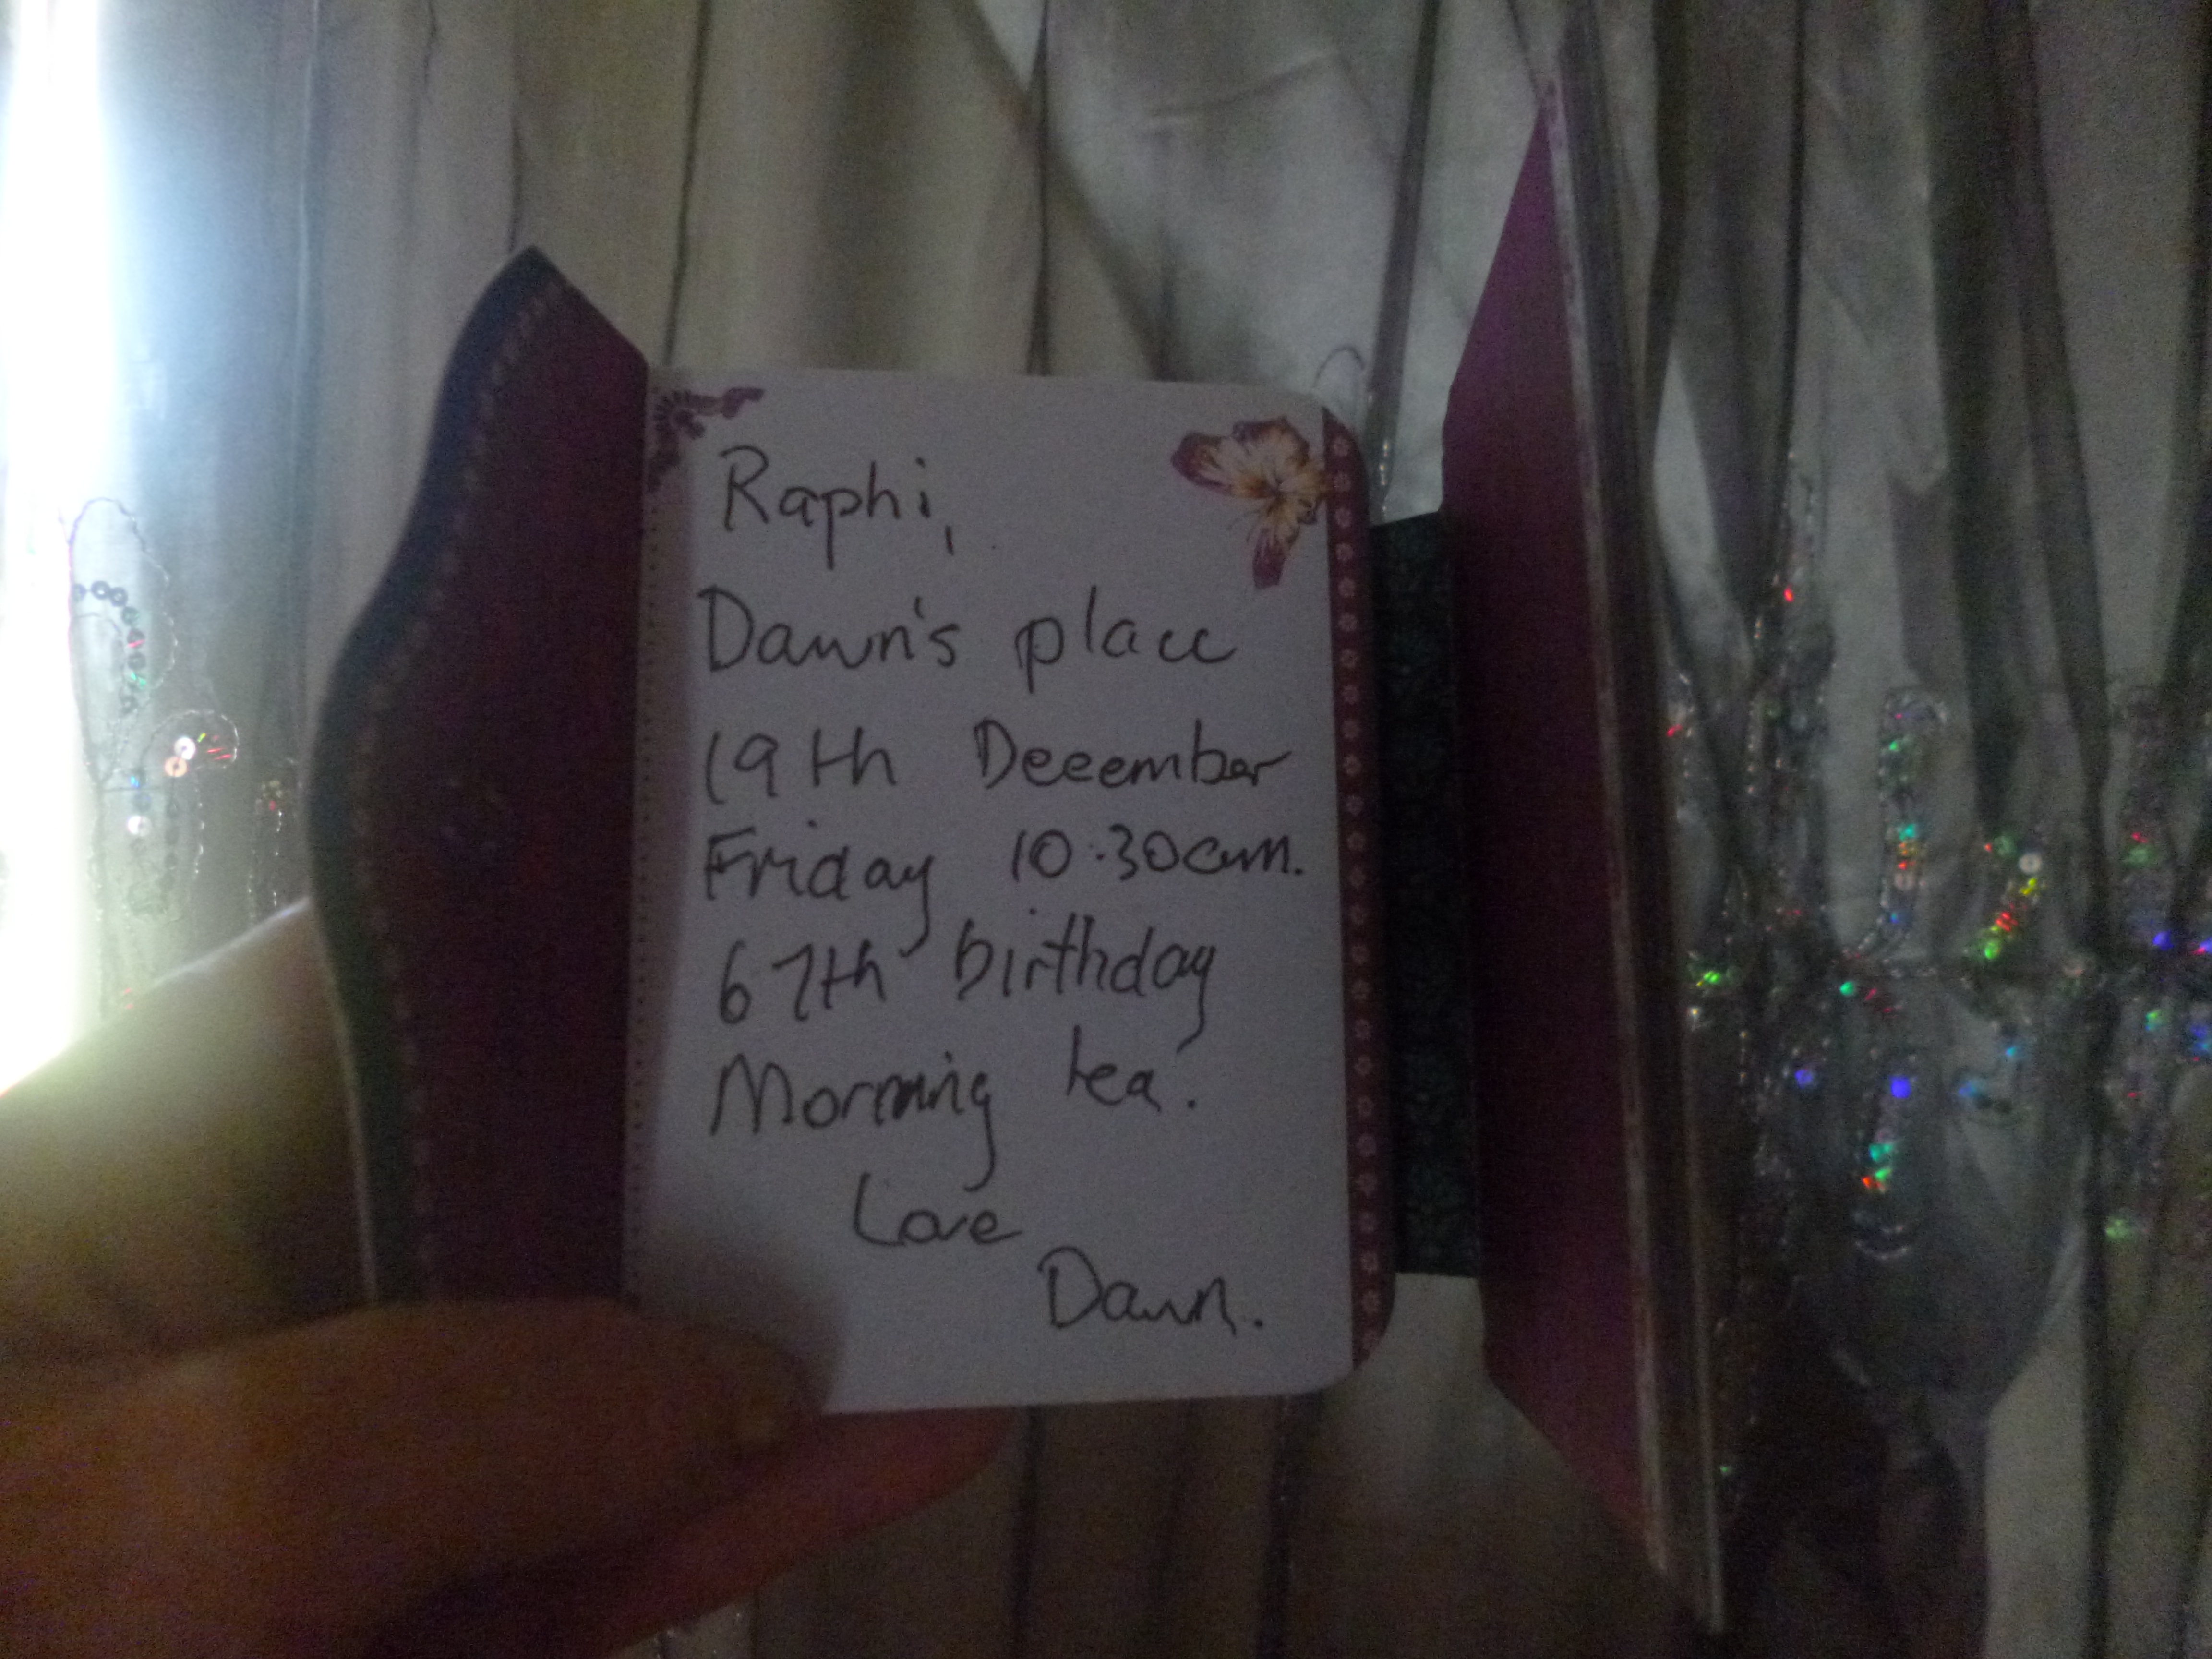 Raphi,
Dawn's place
19th December
Friday 10:30am.
67th birthday
Morning tea.
Love
Dawn.